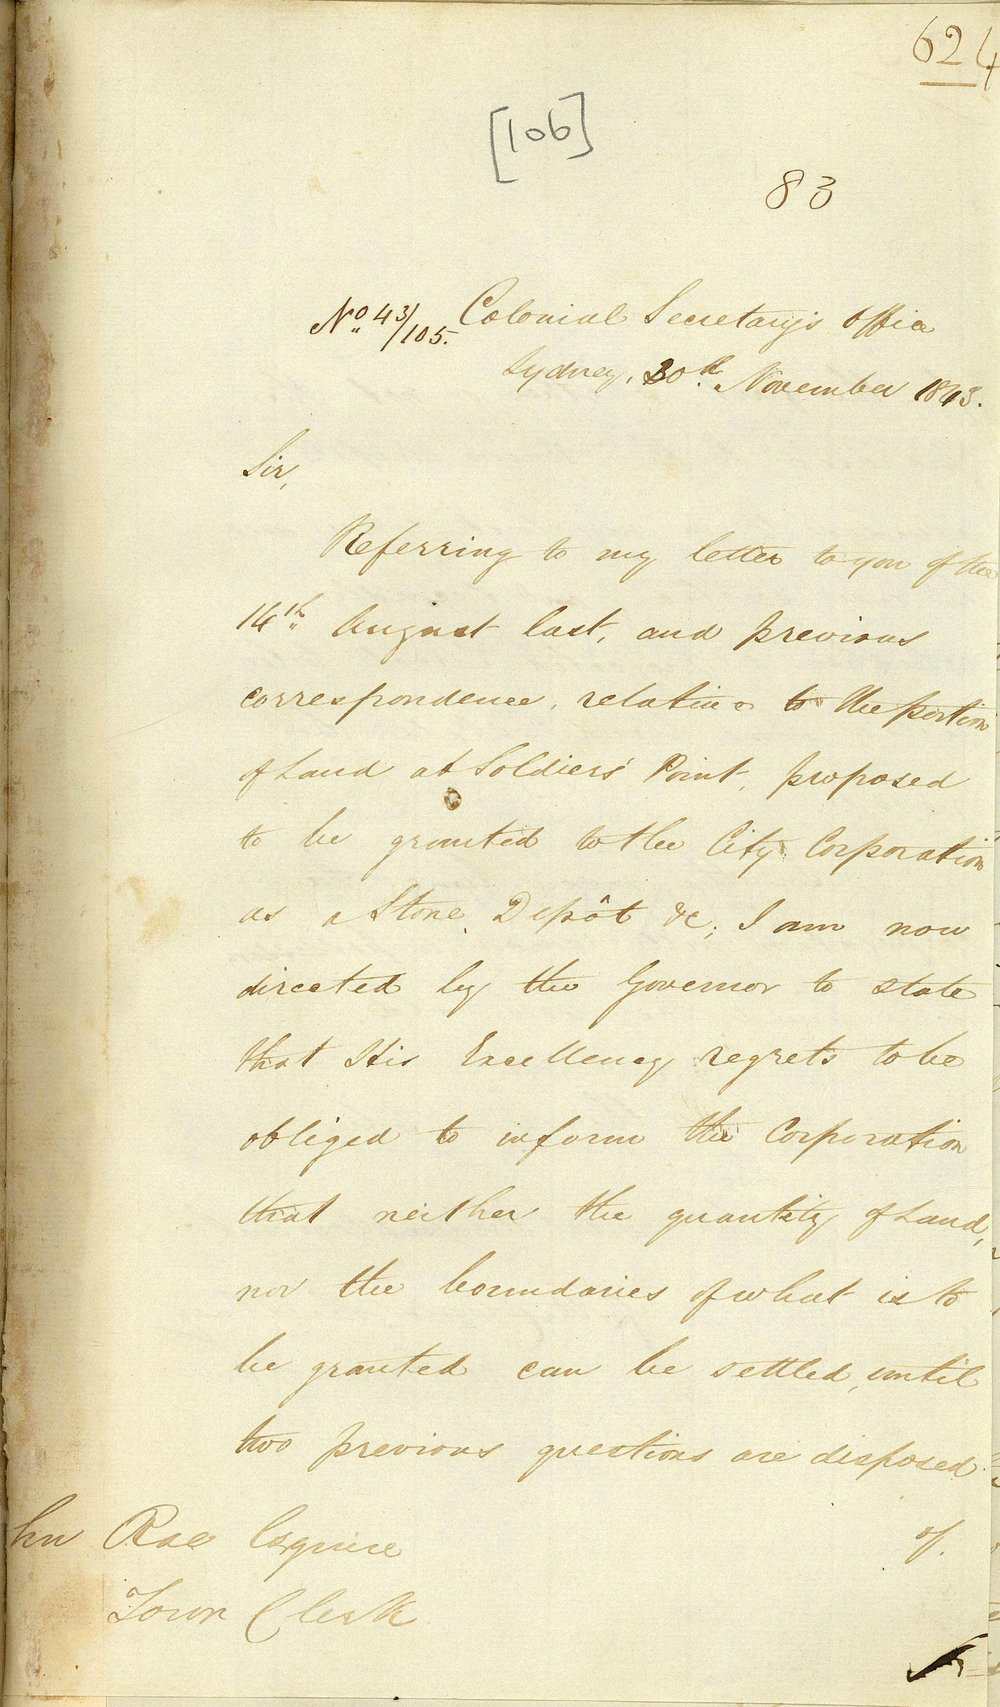 624
[106]
83
No 43/105. Colonial Secretary's Office
Sydney, 30th November 1843.
Sir,
Referring to my letter to you of the
14th August last, and previous
correspondence, relative to the portion
of Land at Soldiers' Point, proposed
to be granted to the City Corporation
as a Stone Depôt &c; I am now
directed by the Governor to state
that His Excellency regrets to be
obliged to inform the Corporation
that neither the quantity of Land,
nor the boundaries of what is to
be granted can be settled, until
two previous questions are disposed
of.
hn Rae Esquire
Town Clerk